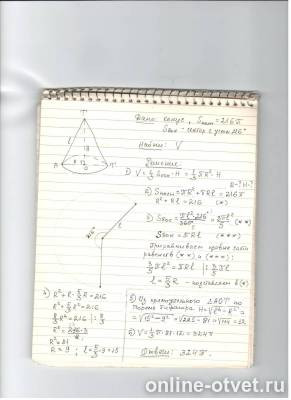 Дано: конус, Sполн = 216π
Sбок - сектор с углом 216°
Найти: V
Решение
1) V = 1/3 Sосн · H = 1/3 πR² · H
R-? H-?
2) Sполн = πR² + πRl = 216π
R² + Rl = 216 (*)
3) Sбок = πl² · 216° / 360° = 3πl² / 5 (**)
Sбок = πRl (***)
Приравниваем правые части
равенств (**) и (***):
3/5 πl² = πRl | : 3/5 πl
l = 5/3 R - подставляем в (*)
216°
l
4) R² + R · 5/3 R = 216
R² + 5/3 R² = 216
8/3 R² = 216 | : 8/3
R² = 216·3 / 8
R² = 81
R = 9; l = 5/3 · 9 = 15
5) Из прямоугольного ΔAOT по
теореме Пифагора H = √l² - R² =
√15² - 9² = √225 - 81 = √144 = 12
6) V = 1/3 π · 81 · 12 = 324π
Ответ: 324π.
online-otvet.ru